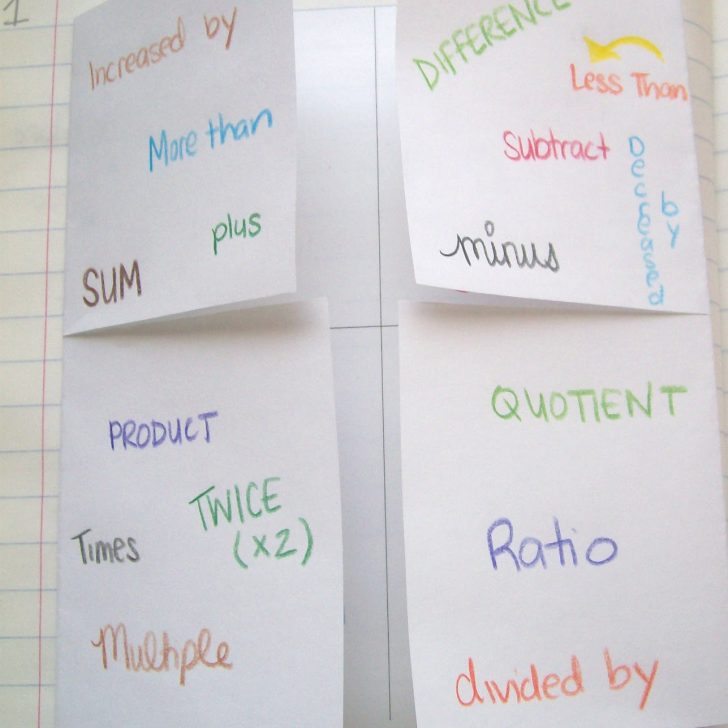 1
Increased by
More than
plus
SUM
DIFFERENCE
Less Than
Subtract
Decreased
by
minus
PRODUCT
TWICE
(x2)
Times
Multiple
QUOTIENT
Ratio
divided by